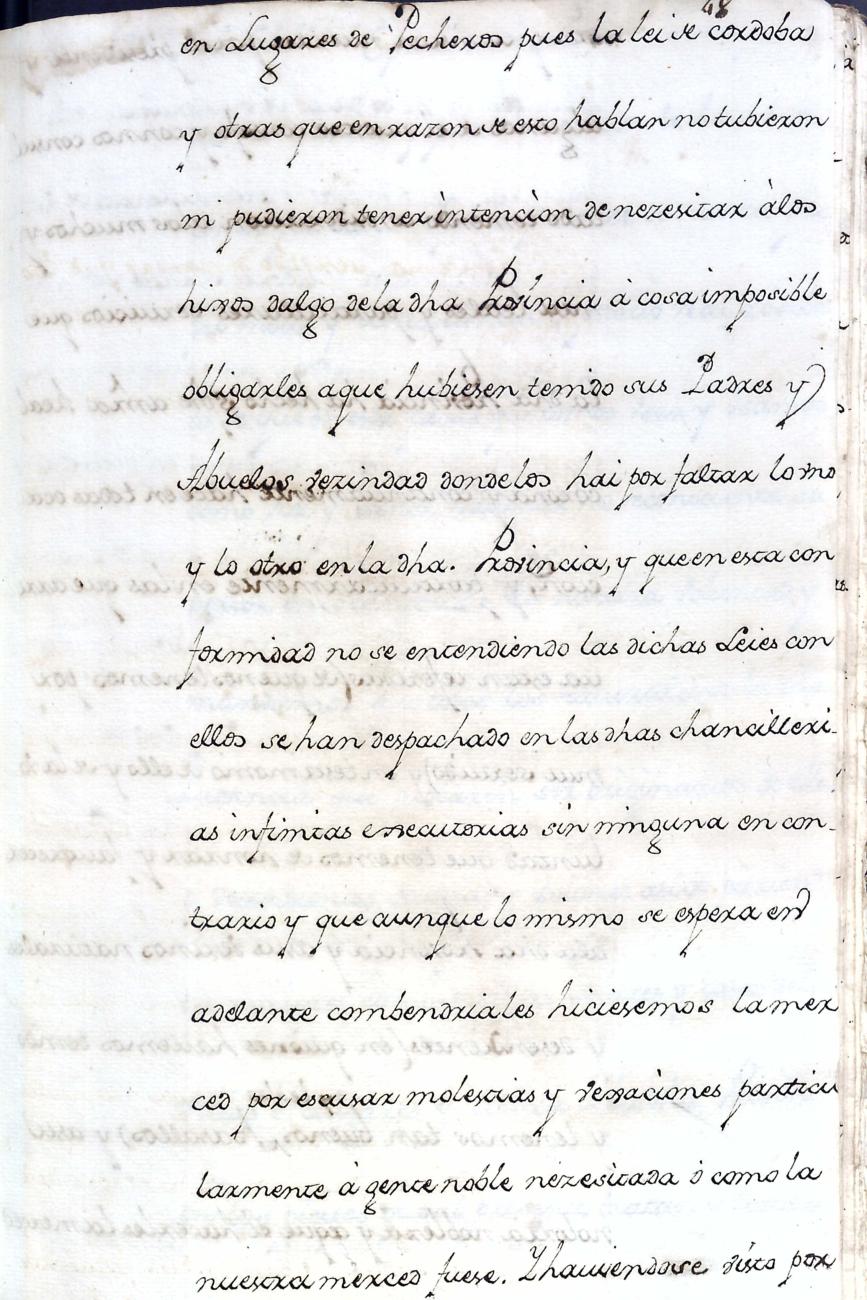 48
en Lugares de Pecheros pues la lei de cordoba
y otras que en razon de esto hablan no tubieron
ni pudieron tener intenciòn de nezesitar à los
hixos dalgo de la dha Provincia à cosa imposible
obligarles a que hubiesen tenido sus Padres y
Abuelos vezindad donde los hai por faltar lo vno
y lo otro en la dha. Provincia, y que en esta con
formidad no se entendiendo las dichas Leies con
ellos se han despachado en las dhas chancilleri-
as infinitas executorias sin ninguna en con-
trario y que aunque lo mismo se espera en
adelante combendria les hiciesemos la mer
ced por escusar molestias y vexaciones particu
larmente à gente noble nezesitada ò como la
nuestra merced fuese. Y haviendose visto por